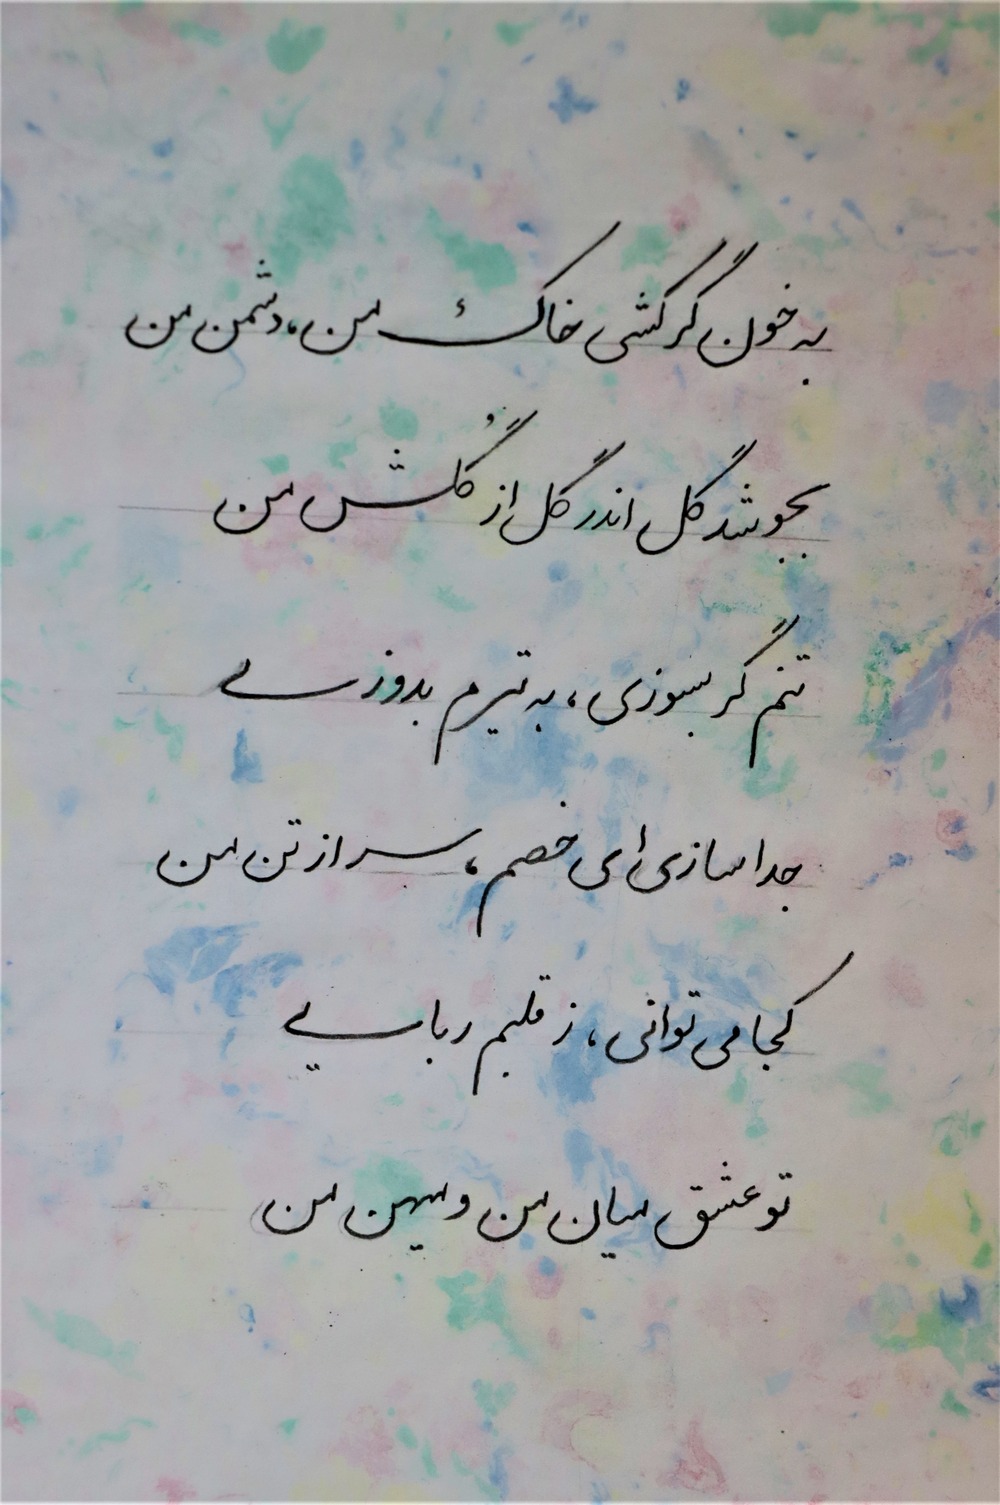 به خون گر کشی خاک من، دشمن من
بجوشد گل اندر گل از گلشن من
تنم گر بسوزی، به تیرم بدوزی
جدا سازی ای خصم، سر از تن من
کجا می توانی، ز قلبم ربایی
تو عشق میان من و میهن من